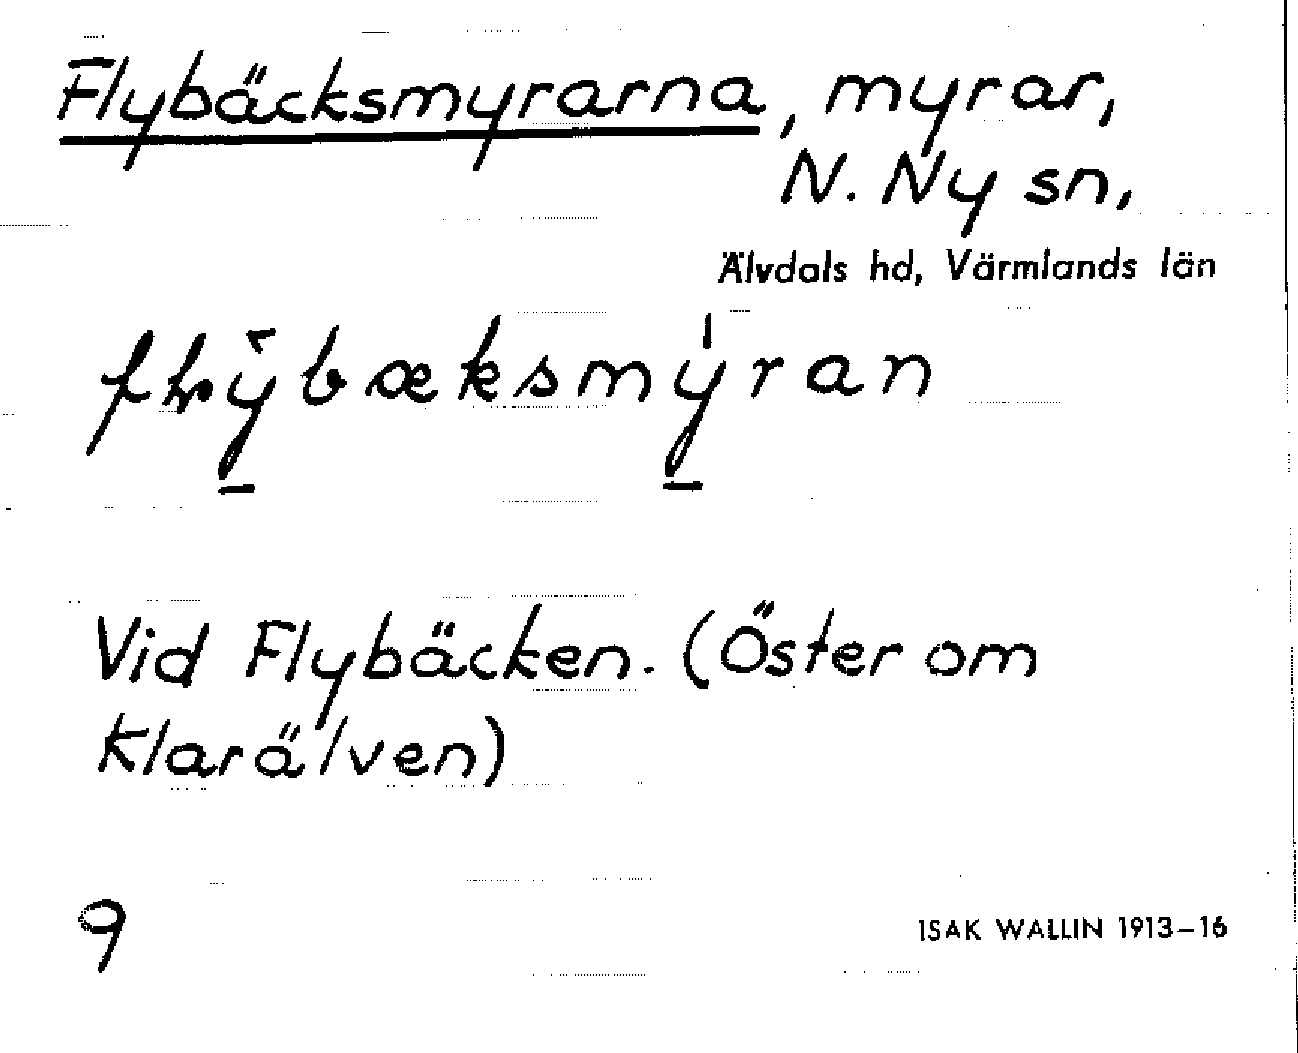 Flybäcksmyrarna, myrar,
N. Ny sn,
Älvdals hd, Värmlands län
Vid Flybäcken. (Öster om
Klarälven)
9
ISAK WALLIN 1913–16